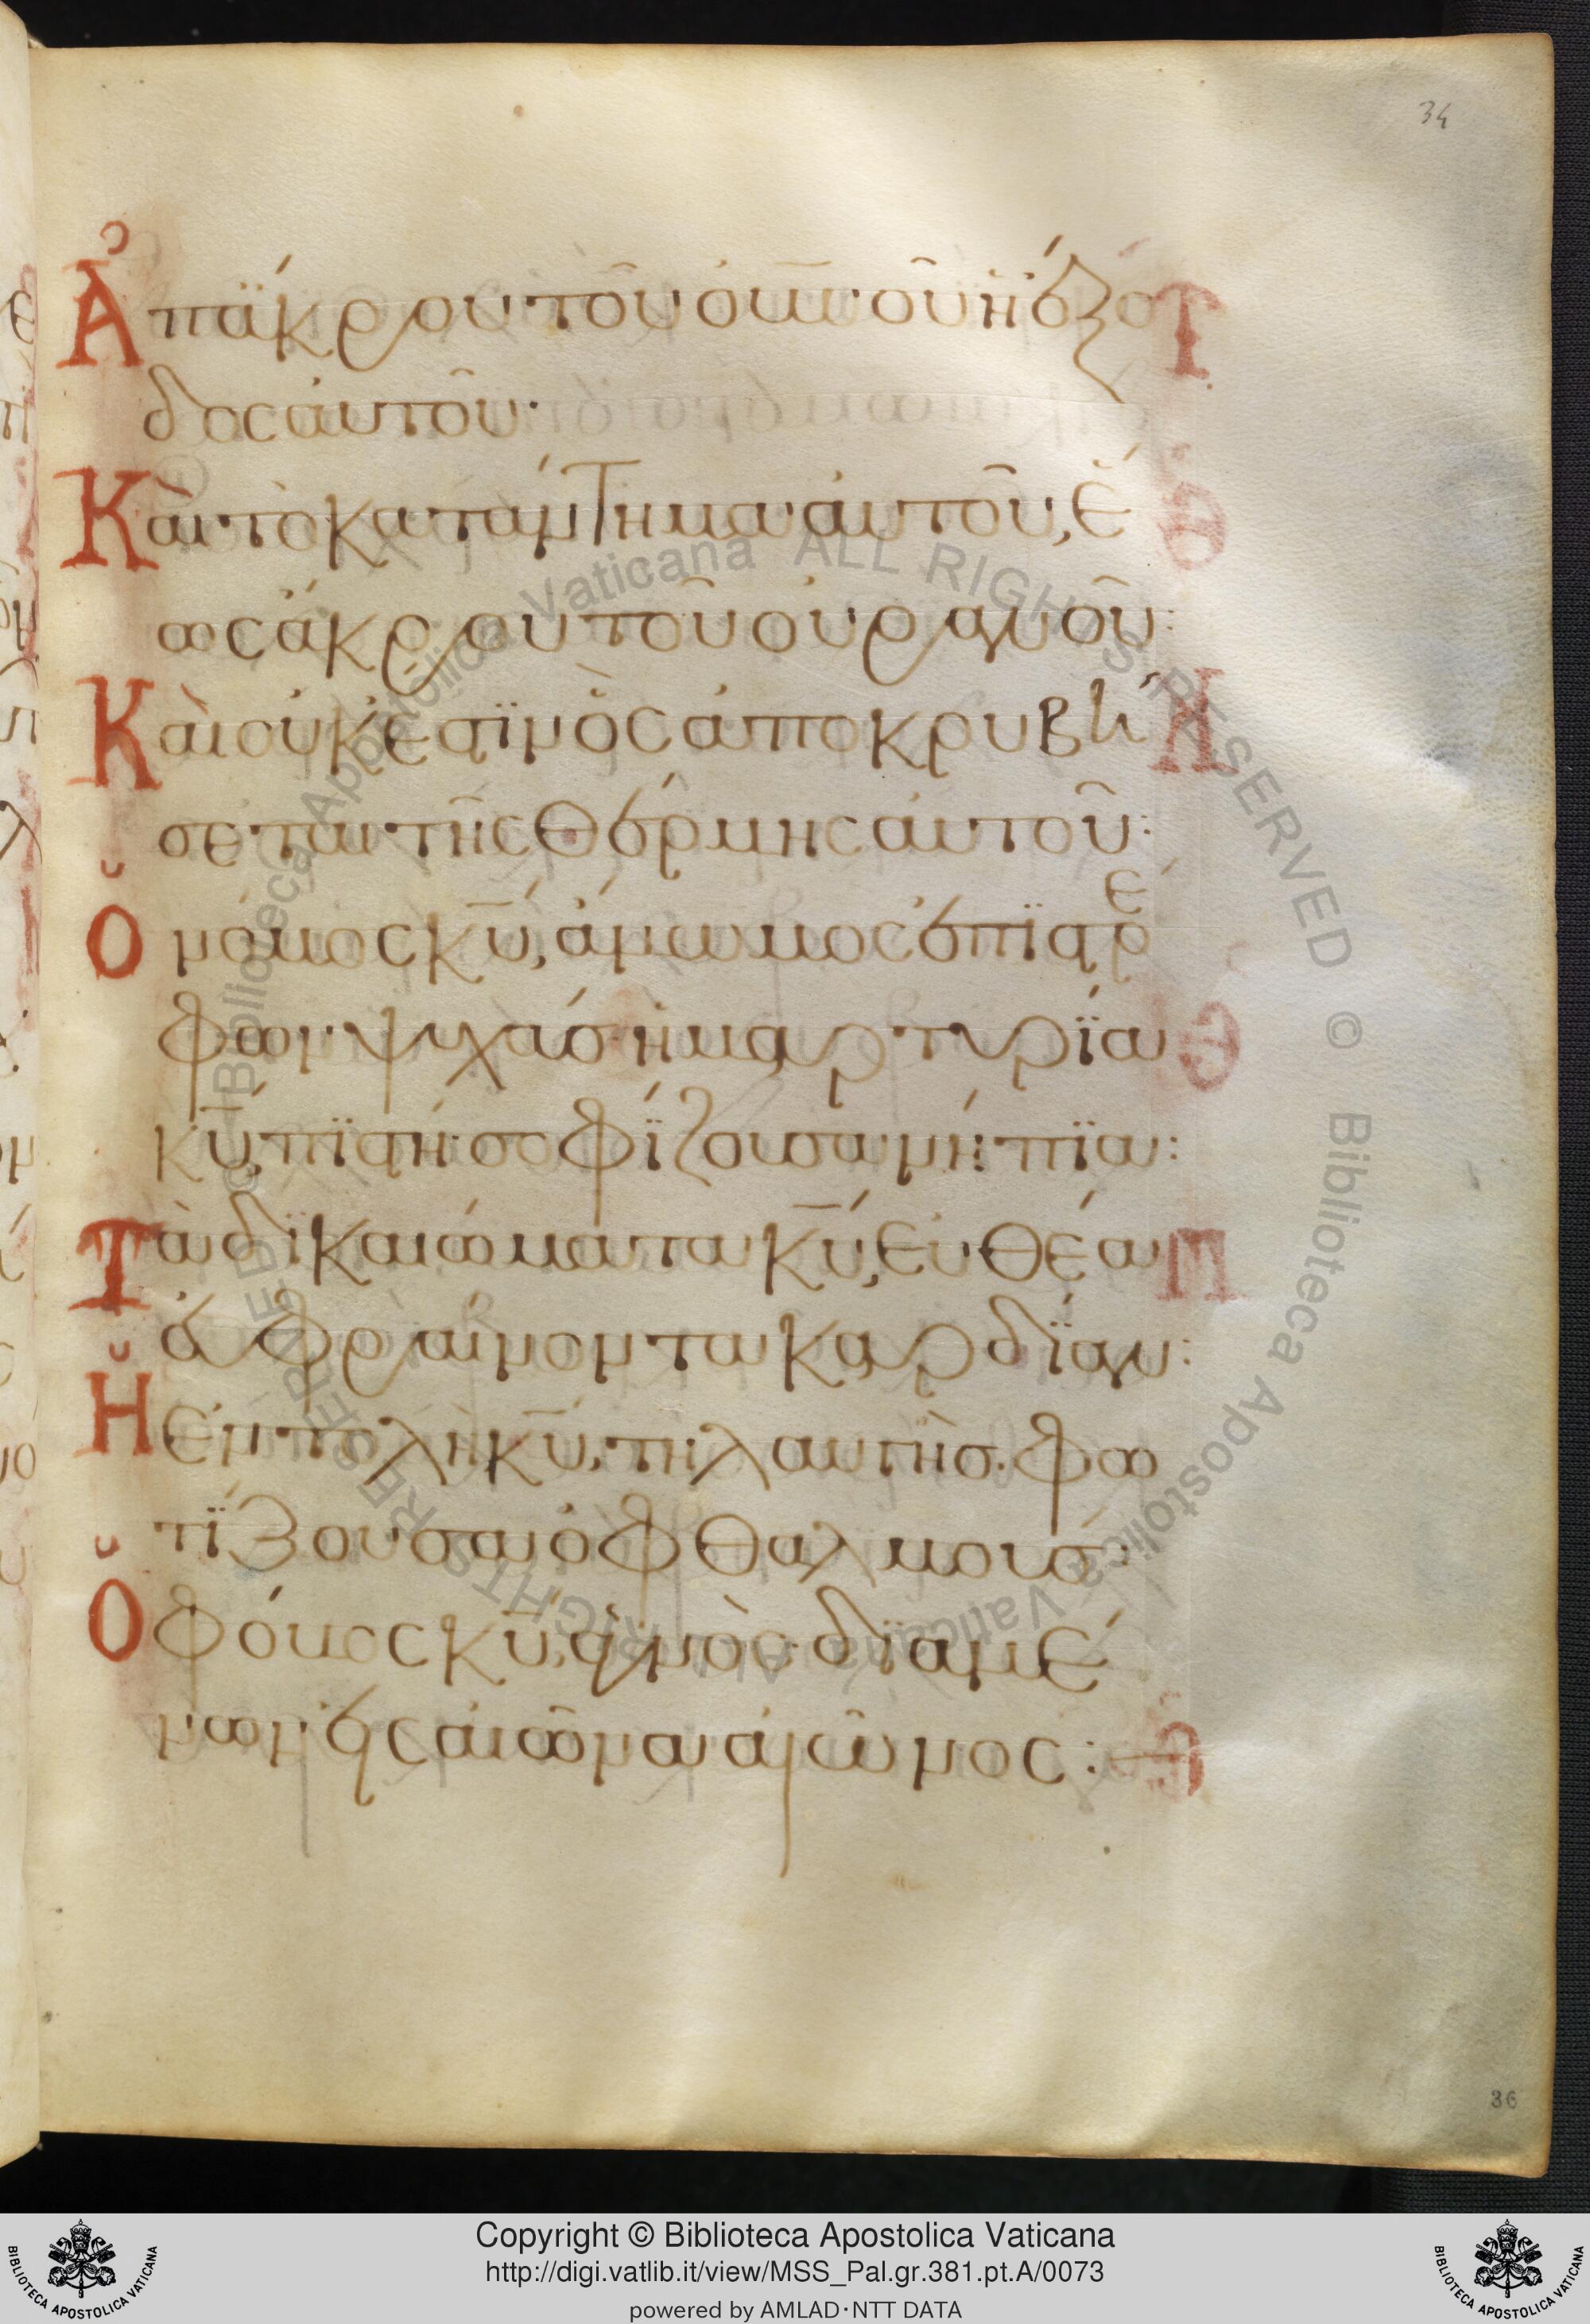 34
Ἀπἄκρου τοῦ οὐνοῦ ἡ ἔξο
δος ἀυτοῦ·
Καὶ τὸ κατάντημα ἀυτοῦ, ἕ
ως ἄκρου τοῦ οὐρανοῦ:
Καὶ οὐκ ἔστϊν ὃς ἀποκρυβή
σεται τῆς θέρμης ἀυτοῦ:
Ὁ νόμος κυ̅, ἄμωμος ἐπϊστρέ
φων ψυχάσ· ἡ μαρτυρία
κυ̅, πϊστή· σοφΐζουσα νήπϊα:
Τὰ δϊκαιώματα κυ̅, ἐυθέα
ἐυφραίνοντα καρδΐαν:
Ἡ ἐντολὴ κυ̅, τηλαυγὴσ· φω
τΐζουσα ὀφθαλμούσ·
Ὁ φόβος κυ̅, ἁγνὸς· δϊαμέ
νων εἰς αἰῶνα αἰῶνος:
36
Copyright © Biblioteca Apostolica Vaticana
http://digi.vatlib.it/view/MSS_Pal.gr.381.pt.A/0073
powered by AMLAD·NTT DATA
BIBLIOTECA APOSTOLICA VATICANA
BIBLIOTECA APOSTOLICA VATICANA
© Biblioteca Apostolica Vaticana ALL RIGHTS RESERVED © Biblioteca Apostolica Vaticana ALL RIGHTS RESERVED